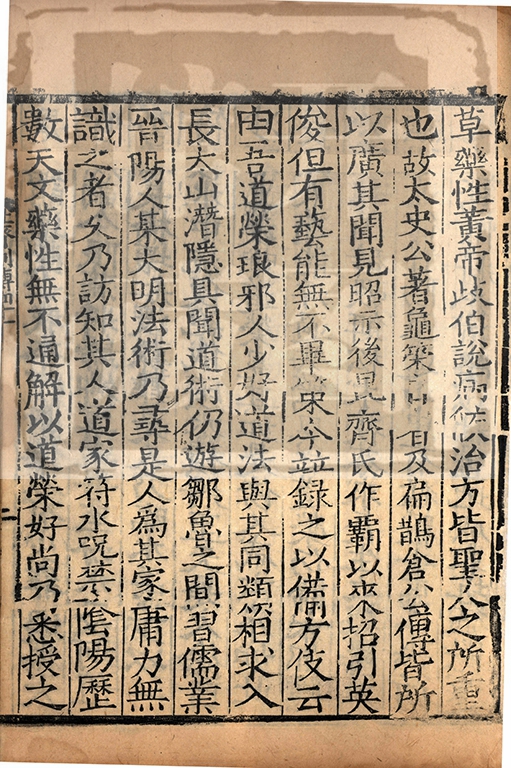 草藥性黃帝歧伯說病候治方皆聖人之所重
也故太史公著龜筴日者及扁鵲倉公傳皆所
以廣其聞見昭示後昆齊氏作霸以來招引英
俊但有藝能無不畢策今並錄之以備方伎云
由吾道榮琅邪人少好道法與其同類相求入
長太山潛隱具聞道術仍遊鄒魯之間習儒業
晉陽人某大明法術乃尋是人為其家庸力無
識之者久乃訪知其人道家符水呪禁陰陽歷
數天文藥性無不通解以道榮好尚乃悉授之